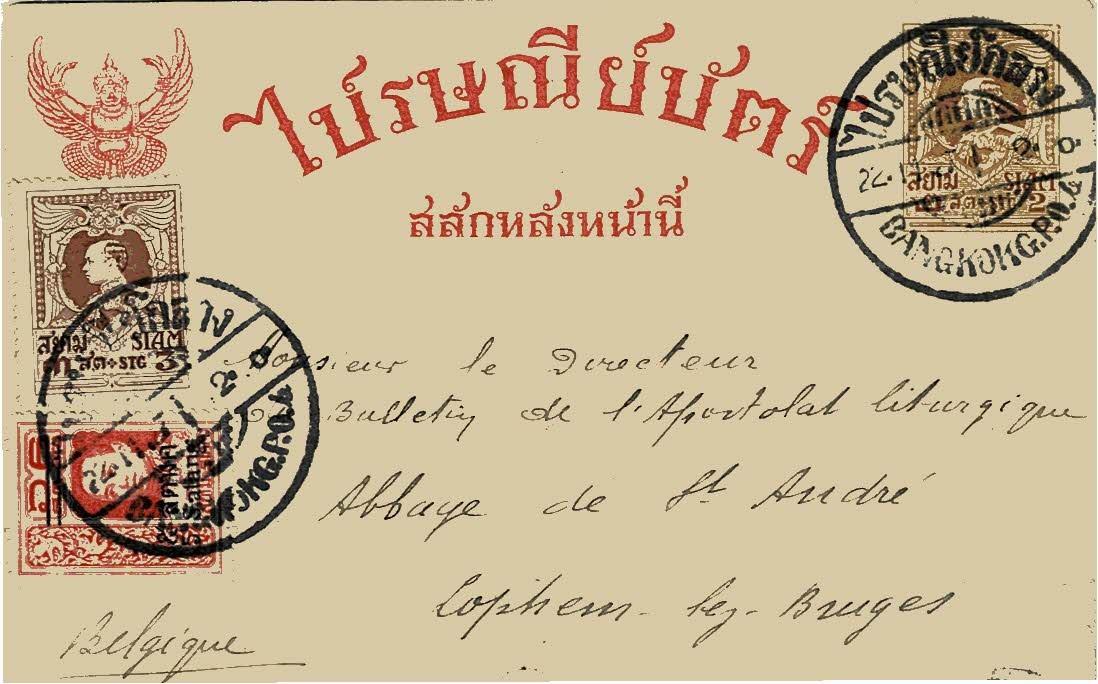 ไปรษณีย์บัตร
สลักหลังหน้านี้
ไปรษณีย์กลาง
สยาม SIAM
๒ สต. 2
BANGKOK G.P.O.
สยาม SIAM
๓ สต. STG 3
G.P.O.
Monsieur le Directeur
Bulletin de l'Apostolat liturgique
Abbaye de St André
Lophem-lez-Bruges
Belgique